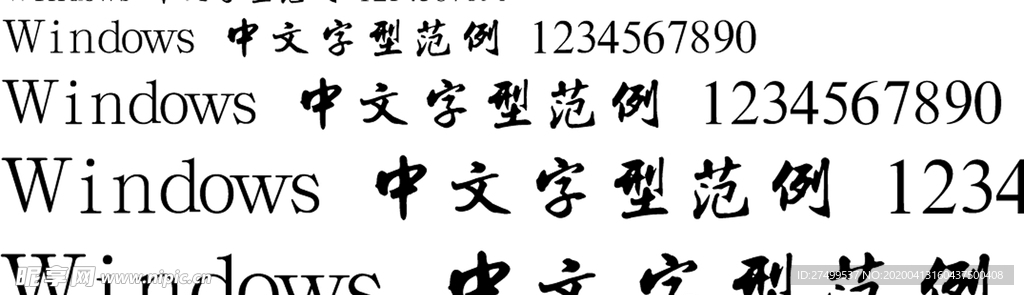 Windows 中文字型范例 1234567890
Windows 中文字型范例 1234567890
Windows 中文字型范例 1234567890
Windows 中文字型范例 1234
Windows 中文字型范例
昵享网 www.nipic.cn
ID:27499537 NO:20200413160437500408